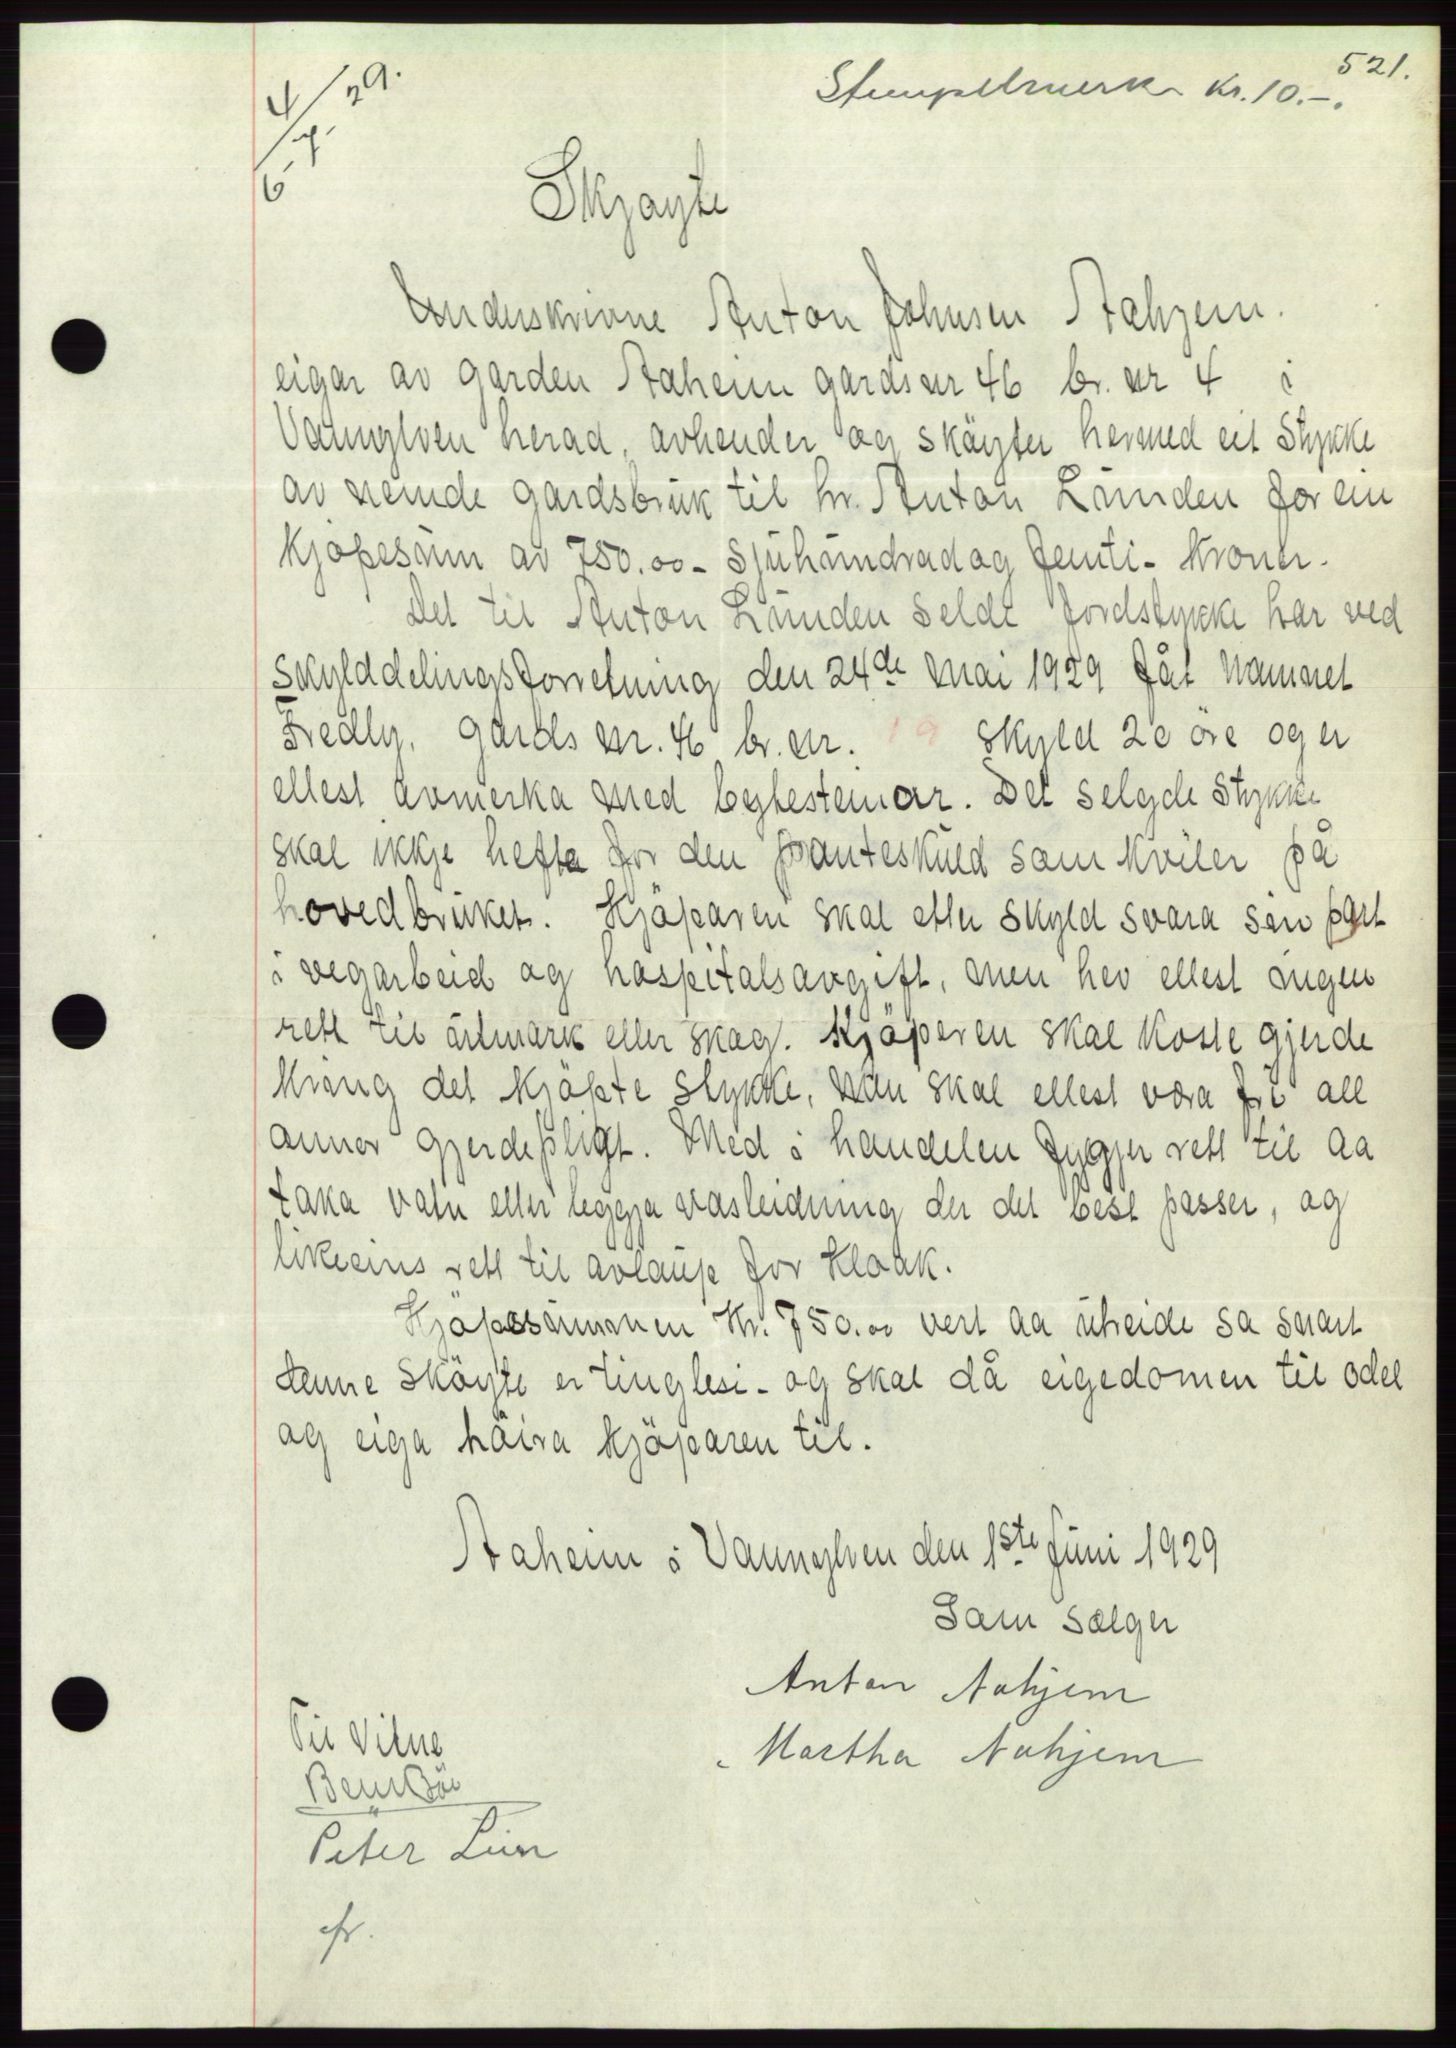 521.
Stempelmerke Kr. 10.–.
4/6-7-29.
Skjøyte
Underskrivne Anton Johnsen Aahjem.
eigar av garden Aaheim gards nr 46 br. nr 4 i
Vannylven herad, avhender og skøyter hermed eit Stykke
av nemde gardsbruk til hr. Anton Lunden for ein
Kjøpesum av 750.00 - Sjuhundradog femti - Kroner.
Det til Anton Lunden Selde Jordstykke har ved
Skylddelingsforretning den 24de Mai 1929 fåt Namnet
Fredly, gards nr. 46 br. nr. 19 Skyld 20 öre og er
ellest avmerka med bytesteinar. Det Selgde Stykke
skal ikkje hefte for den panteskuld som kviler på
hovedbruket. Kjöparen skal etter Skyld svara sin part
i vegarbeid og hospitalsavgift, men hev ellest ingen
rett til utmark eller skog. Kjöperen skal koste gjerde
Kring det Kjöpte Stykke, han skal ellest væra fri all
annor gjerdepligt. Med i handelen fygjer rett til aa
taka vatn eller leggja vasleidning der det best passer, og
likeeins rett til avlaup for Kloak.
Kjöpesummen Kr. 750.00 vert aa utreide sa snart
denne Sköyte er tinglesi - og skal då eigedomen til odel
og eiga höira Kjöparen til.
Aaheim i Vannylven den 1ste Juni 1929
Som Sælger
Anton Aahjem
Martha Aahjem
Til Vitne
Peter Lien